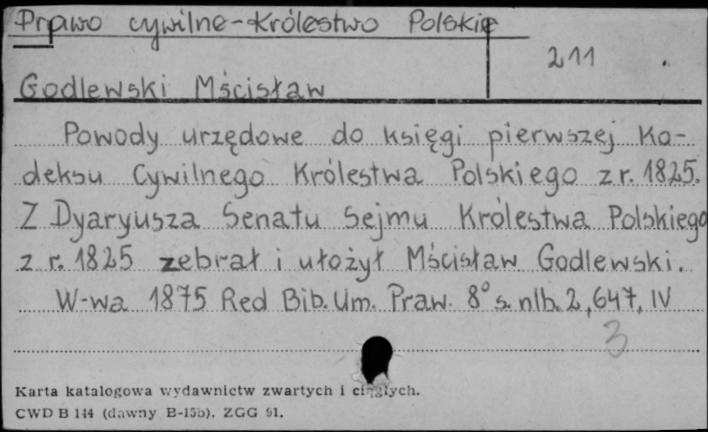 Prawo cywilne-Królestwo Polskie
211
Godlewski Mścisław
Powody urzędowe do księgi pierwszej Ko-
deksu Cywilnego Królestwa Polskiego z r. 1825.
Z Dyaryusza Senatu Sejmu Królestwa Polskiego
z r. 1825 zebrał i ułożył Mścisław Godlewski.
W-wa 1875 Red Bib. Um. Praw. 8° s. nlb. 2, 647, IV
3
Karta katalogowa wydawnictw zwartych i ciągłych.
CWD B 144 (dawny B-15b). ZGG 91.